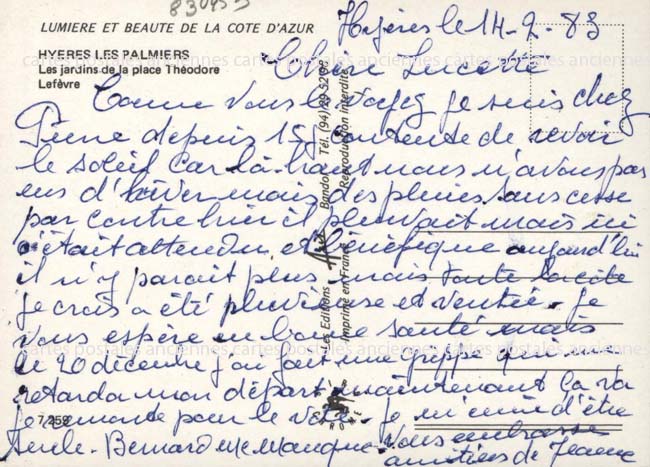 830453
LUMIERE ET BEAUTE DE LA COTE D'AZUR
HYERES LES PALMIERS
Les jardins de la place Théodore
Lefèvre
Hyères le 14-2-83
Chère Lucette
Comme vous le voyez je suis chez
Pierre depuis 15j contente de revoir
le soleil car là haut nous n'avons pas
eus d'hiver mais des pluies sans cesse
par contre hier il pleuvait mais ici
c'était attendu et bénéfique aujourd'hui
il n'y parait plus mais toute la côte
je crois a été pluvieuse et ventée. Je
vous espère en bonne santé mais
le 20 décembre j'ai fait une grippe qui me
retarda mon départ maintenant ça va
je remonte pour le vote. je m'ennuie d'être
seule. Bernard me manque. Vous embrasse
amitiés de Jeanne
7.259
Les Editions Bandol Tél. (94) 29
Imprimé en France Reproduction interdite
cartes postales anciennes cartes postales anciennes cartes postales anciennes
cartes postales anciennes cartes postales anciennes cartes postales anciennes